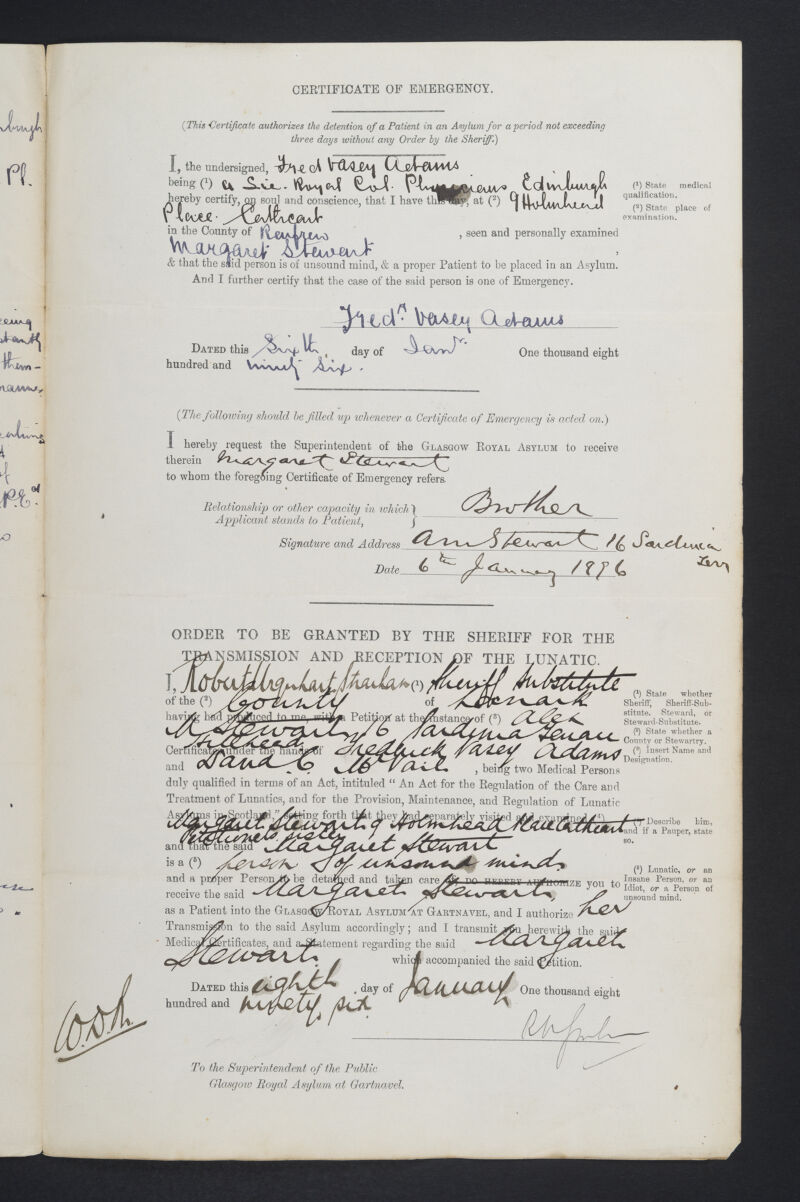 nburgh
Pl.
eeing
stantly
them-
manne-
of
CERTIFICATE OF EMERGENCY.
(This Certificate authorizes the detention of a Patient in an Asylum for a period not exceeding
three days without any Order by the Sheriff.)
I, the undersigned, Fred Vasey Adams
being (1) a Lic. Royal Col. Physicians Edinburgh
(1) State medical
qualification.
hereby certify, on soul and conscience, that I have this day, at (2) 9 Holmhead
(2) State place of
examination.
Place. Cathcart
in the County of Renfrew , seen and personally examined
Margaret Stewart ,
& that the said person is of unsound mind, & a proper Patient to be placed in an Asylum.
And I further certify that the case of the said person is one of Emergency.
Fredk. Vasey Adams
DATED this Sixth day of Jany. One thousand eight
hundred and ninety six.
(The following should be filled up whenever a Certificate of Emergency is acted on.)
I hereby request the Superintendent of the GLASGOW ROYAL ASYLUM to receive
therein Margaret Stewart
to whom the foregoing Certificate of Emergency refers
Relationship or other capacity in which } Brother
Applicant stands to Patient,
Signature and Address AM Stewart 16 Sardinia
Terr
Date 6th January 1896
ORDER TO BE GRANTED BY THE SHERIFF FOR THE
TRANSMISSION AND RECEPTION OF THE LUNATIC.
I, Robert Urquhart Strachan (1) Sheriff Substitute
(1) State whether
Sheriff, Sheriff-Sub-
stitute, Steward, or
Steward-Substitute.
of the (2) County of Lanark
(2) State whether a
County or Stewartry.
having had produced to me, with a Petition at the instance of (3) Alex
(3) Insert Name and
Designation.
M Stewart, 16 Sardinia Terrace
Hillhead
Certificates under the hands of Frederick Vasey Adams
and David C. McVail , being two Medical Persons
duly qualified in terms of an Act, intituled “ An Act for the Regulation of the Care and
Treatment of Lunatics, and for the Provision, Maintenance, and Regulation of Lunatic
Asylums in Scotland,” setting forth that they had separately visited and examined (4)
(4) Describe him,
and if a Pauper, state
so.
Margaret Stewart, 9 Holmhead Place Cathcart
Petitioners sister
and that the said Margaret Stewart
is a (5) person of unsound mind.
(5) Lunatic, or an
Insane Person, or an
Idiot, or a Person of
unsound mind.
and a proper Person to be detained and taken care of, DO HEREBY AUTHORIZE you to
receive the said Margaret Stewart,
as a Patient into the GLASGOW ROYAL ASYLUM AT GARTNAVEL, and I authorize her
Transmission to the said Asylum accordingly; and I transmit you herewith the said
Medical Certificates, and a Statement regarding the said Margaret
Stewart. which accompanied the said Petition.
DATED this eighth day of January One thousand eight
hundred and ninety six.
To the Superintendent of the Public
Glasgow Royal Asylum at Gartnavel.